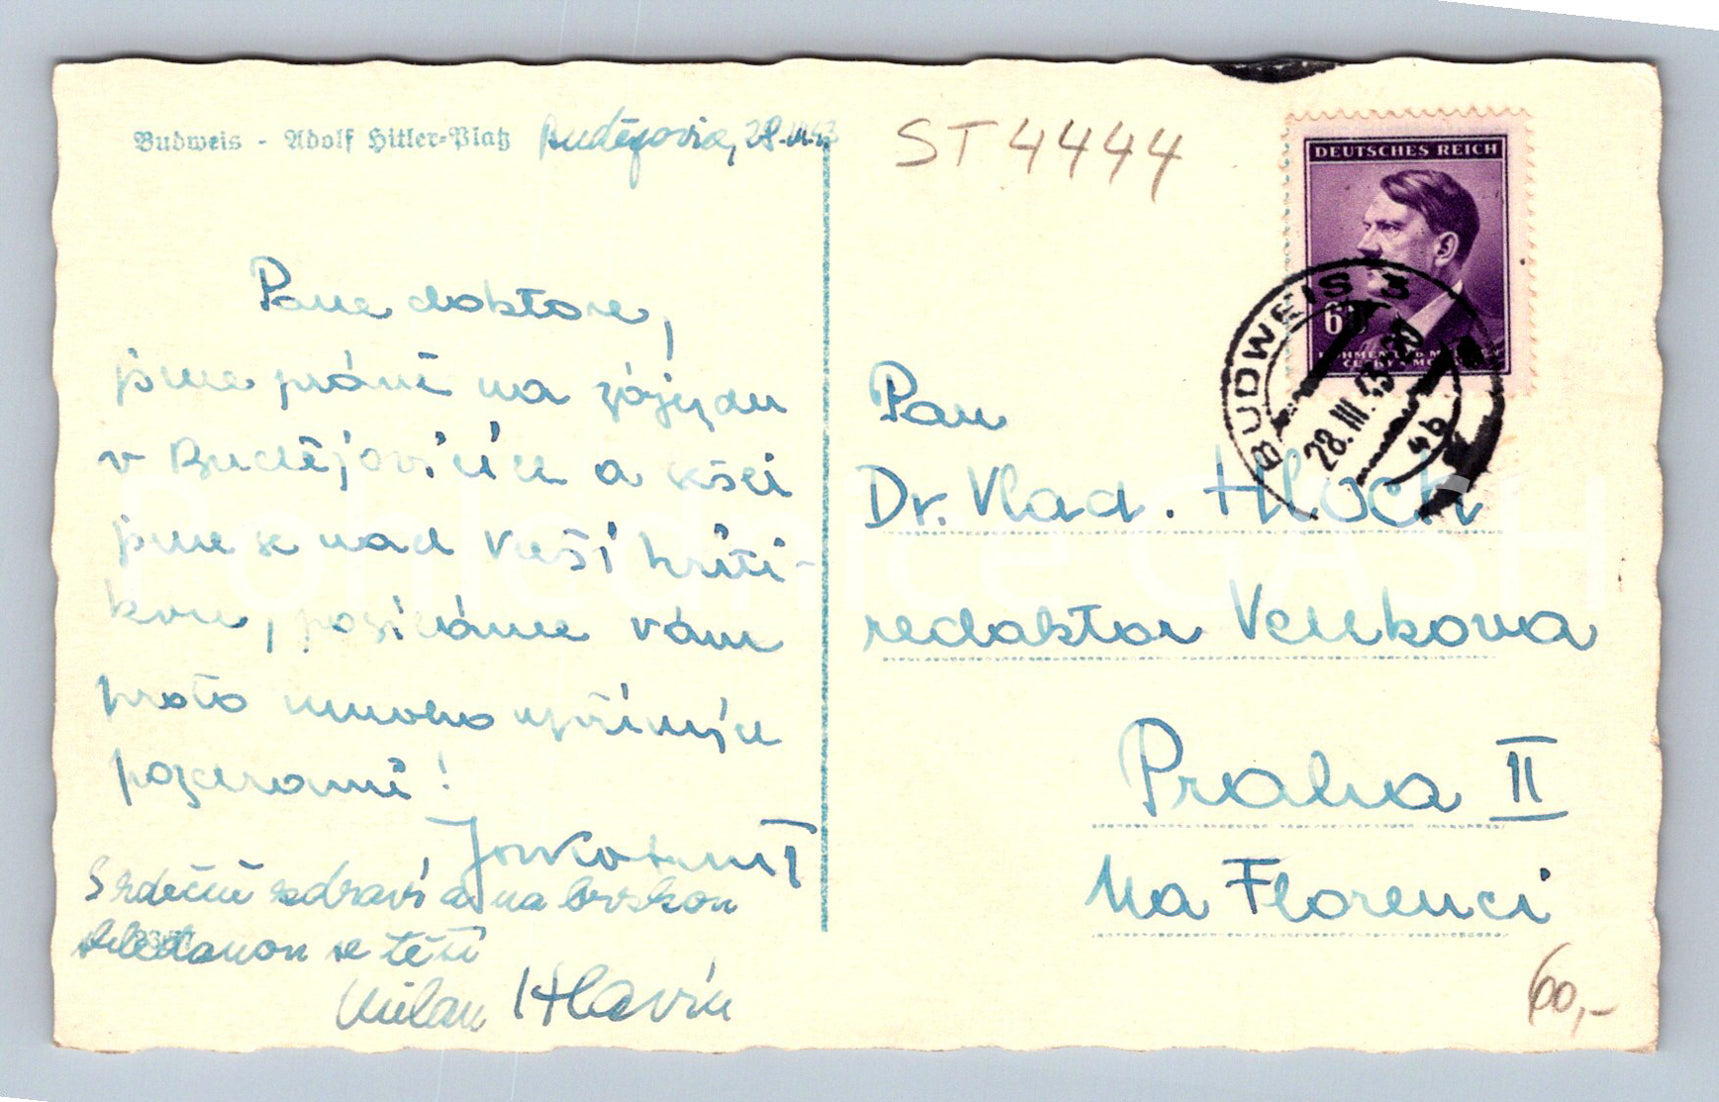 Budweis - Adolf Hitler-Platz
Budějovice, 28.III.43
ST 4444
DEUTSCHES REICH
60
BÖHMEN UND MÄHREN
ČECHY A MORAVA
BUDWEIS 3
28.III.43
Pane doktore,
jsme právě na zájezdu
v Budějovicích a
jsme se nad Vaší kriti-
kou, posíláme vám
proto mnoho upřímných
pozdravů!
Srdečně zdraví a na brzkou
shledanou se těší
Milan Hlavín
Pan
Dr. Vlad. Hloch
redaktor Venkova
Praha II
Na Florenci
60,-
Pohlednice GASH